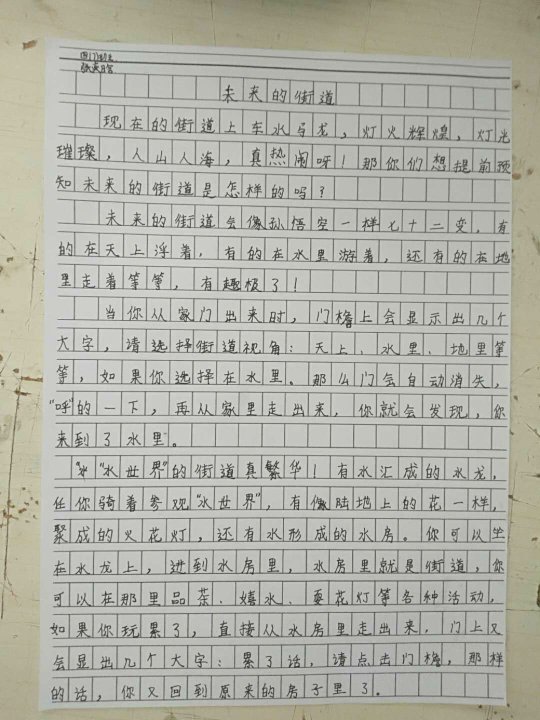 四(7)班
未来的街道
现在的街道上车水马龙，灯火辉煌，灯光
璀璨，人山人海，真热闹呀！那你们想提前预
知未来的街道是怎样的吗？
未来的街道会像孙悟空一样七十二变，有
的在天上浮着，有的在水里游着，还有的在地
里走着等等，有趣极了！
当你从家门出来时，门檐上会显示出几个
大字，请选择街道视角：天上、水里、地里等
等，如果你选择在水里。那么门会自动消失，
“呼”的一下，再从家里走出来，你就会发现，你
来到了水里。
“水世界”的街道真繁华！有水汇成的水龙，
任你骑着参观“水世界”，有像陆地上的花一样，
聚成的火花灯，还有水形成的水房。你可以坐
在水龙上，进到水房里，水房里就是街道，你
可以在那里品茶、嬉水、耍花灯等各种活动，
如果你玩累了，直接从水房里走出来，门上又
会显出几个大字：累了话，请点击门檐，那样
的话，你又回到原来的房子里了。